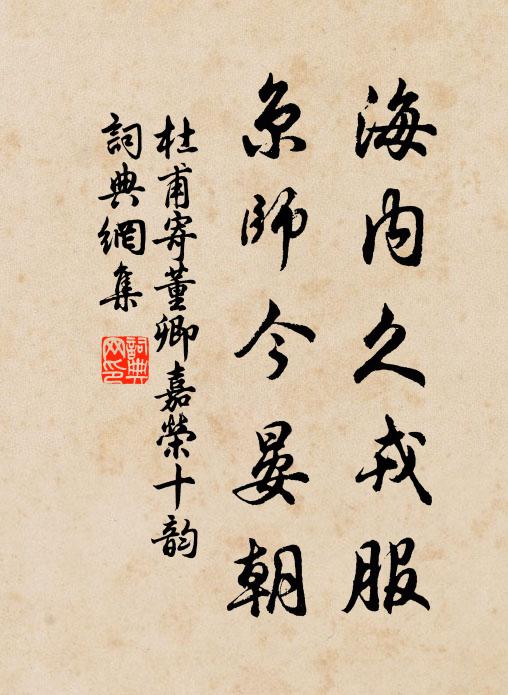 海内久戎服
京師今晏朝
杜甫寄董卿嘉榮十韵
詞典網集
詞典網印